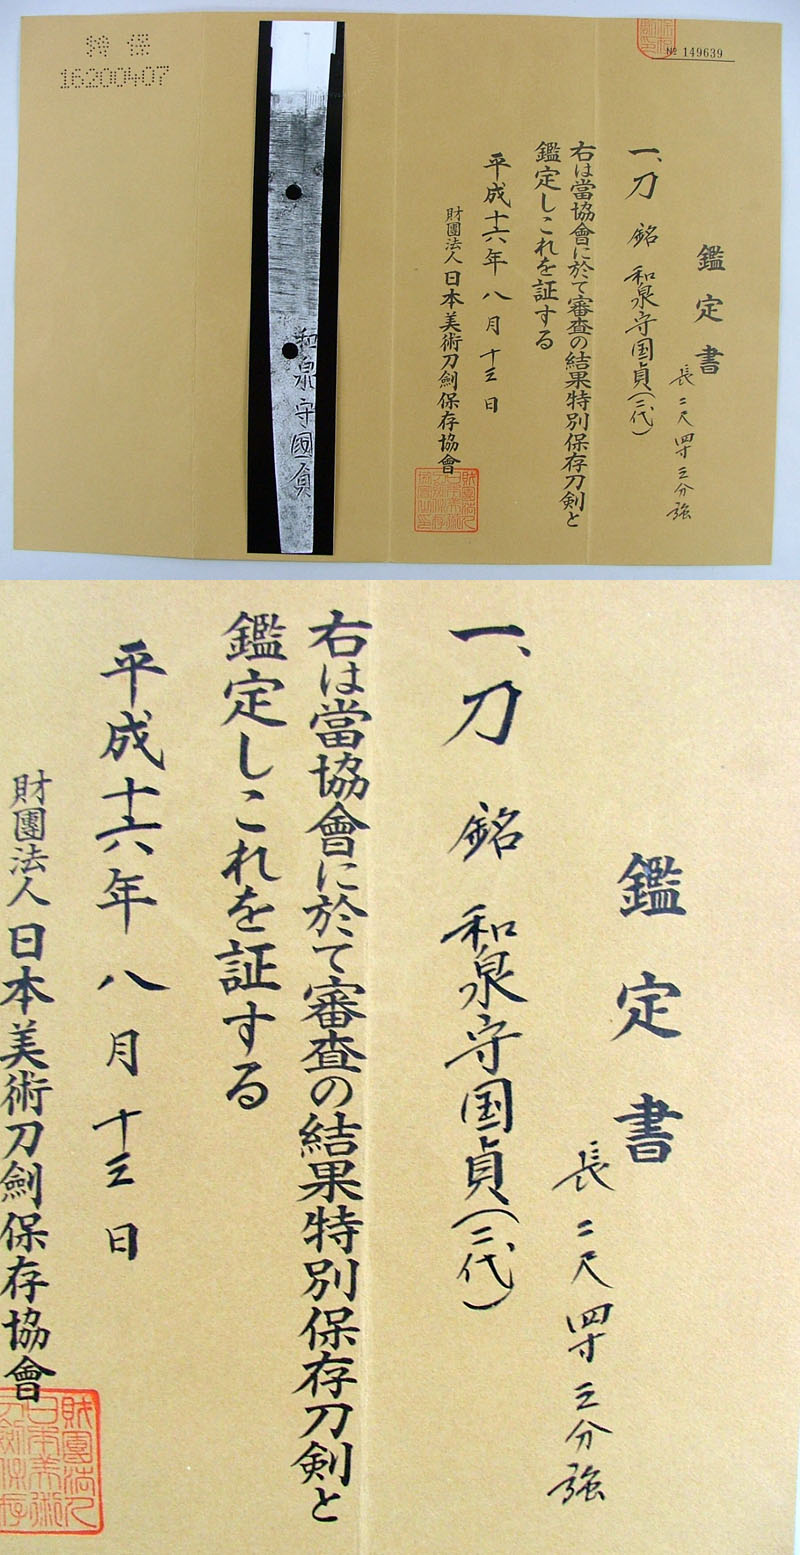 特 保
16200407
和泉守國貞
№ 149639
鑑定書
長 二尺四寸三分強
一、刀 銘 和泉守国貞(二代)
右は當協會に於て審査の結果特別保存刀剣と
鑑定しこれを証する
平成十六年 八月 十三日
財團法人 日本美術刀劍保存協會
鑑定書
長 二尺四寸三分強
一、刀 銘 和泉守国貞(二代)
右は當協會に於て審査の結果特別保存刀剣と
鑑定しこれを証する
平成十六年 八月 十三日
財團法人 日本美術刀劍保存協會